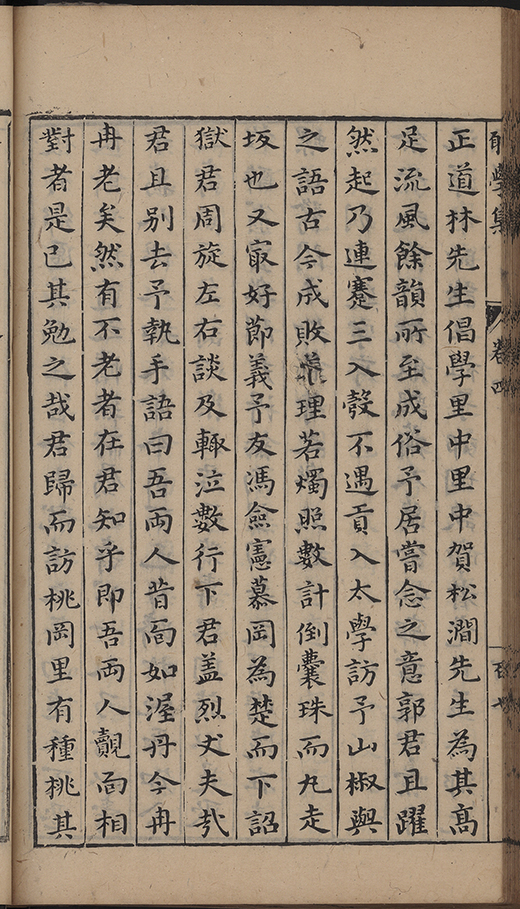 學集 卷四
正道林先生倡學里中里中賀松澗先生為其高
足流風餘韻所至成俗予居嘗念之意郭君且躍
然起乃連蹇三入彀不遇貢入太學訪予山椒與
之語古今成敗理若燭照數計倒囊珠而丸走
坂也又㝡好節義予友馮僉憲慕岡為楚而下詔
獄君周旋左右談及輙泣數行下君盖烈丈夫㢤
君且別去予執手語曰吾両人昔面如渥丹今冉
冉老矣然有不老者在君知乎即吾両人覿面相
對者是已其勉之哉君歸而訪桃岡里有種桃其